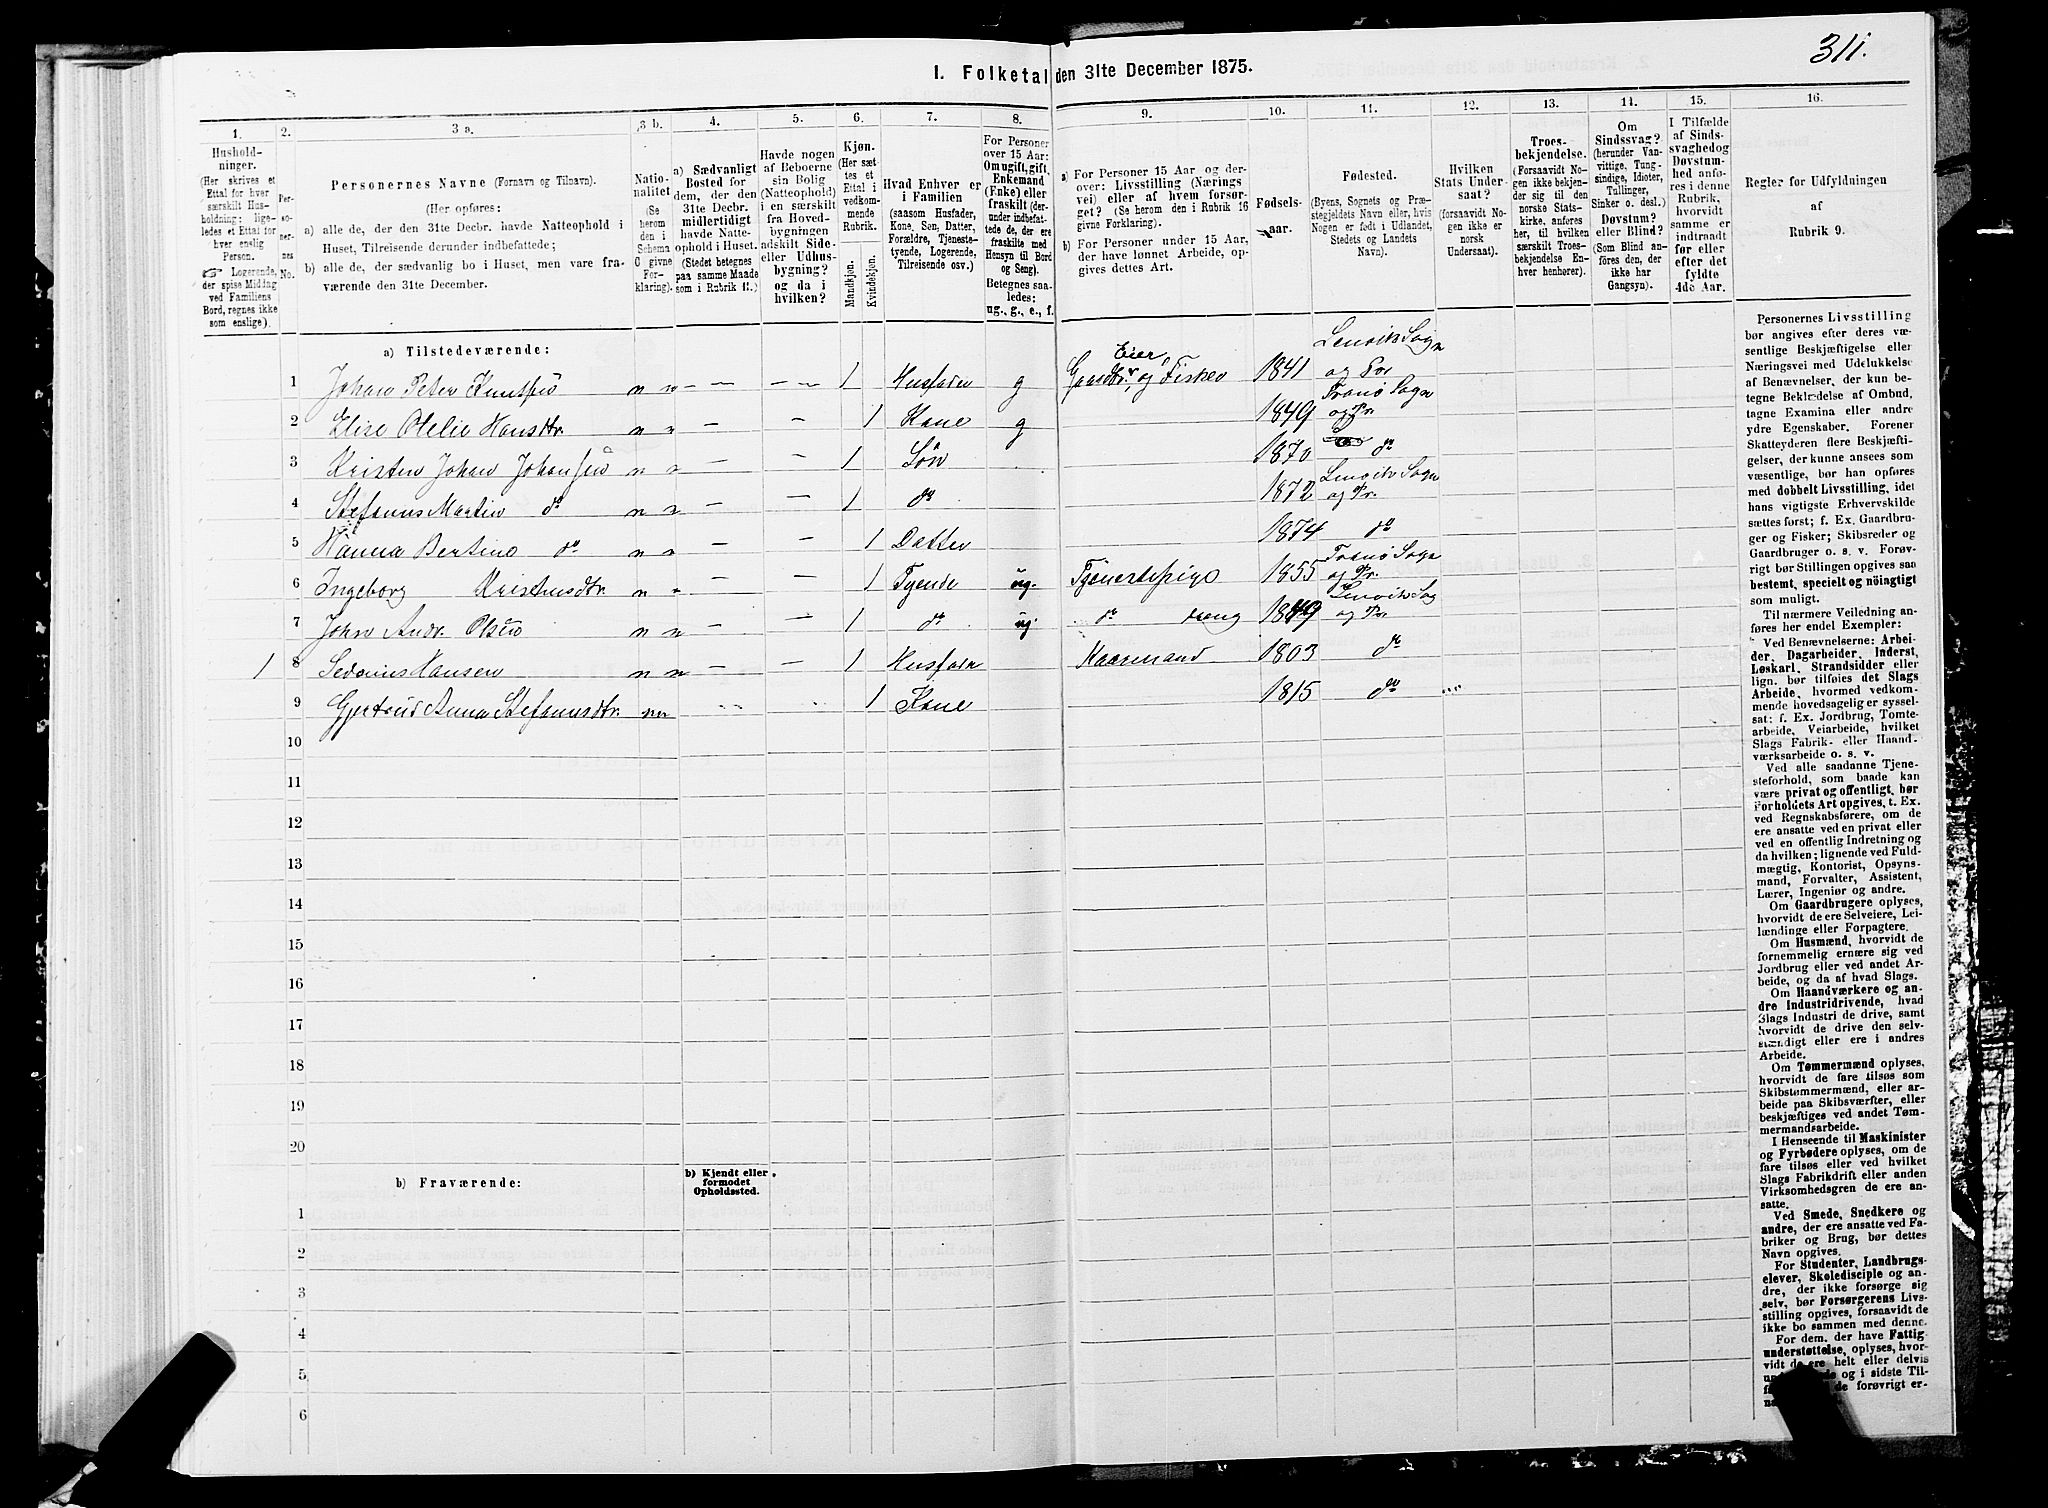 311.
I. Folketal den 31te December 1875.
1. 2. 3 a. 3 b. 4. 5. 6. 7. 8. 9. 10. 11. 12. 13. 14. 15. 16.
Husholdninger.
(Her skrives et
Ettal for hver
særskilt Husholdning:
ligeledes et Ettal for
hver enslig
Person.
☞ Logerende,
der spise Middag
ved Familiens
Bord, regnes ikke
som enslige).
Personernes
No.
Personernes Navne (Fornavn og Tilnavn).
(Her opføres:
a) alle de, der den 31te Decbr. havde Natteophold i
Huset, Tilreisende derunder indbefattede;
b) alle de, der sædvanlig bo i Huset, men vare fraværende
den 31te December.
Nationalitet
(Se
herom
den i
Schema
C givne
Forklaring).
a) Sædvanligt
Bosted for
dem, der den
31te Decbr.
midlertidigt
havde Natteophold
i Huset.
(Stedet betegnes
paa samme Maade
som i Rubrik 11.)
Havde nogen
af Beboerne
sin Bolig
(Natteophold)
i en særskilt
fra Hovedbygningen
adskilt Side-
eller Udhusbygning?
og da i
hvilken?
Kjøn.
(Her sættes
et
Ettal i
vedkommende
Rubrik.
Mandkjøn.
Kvindekjøn.
Hvad Enhver er
i Familien
(saasom Husfader,
Kone, Søn, Datter,
Forældre, Tjenestetyende,
Logerende,
Tilreisende osv.)
For Personer
over 15 Aar:
Om ugift, gift,
Enkemand
(Enke) eller
fraskilt (derunder
indbefattede
de, der ere
fraskilte med
Hensyn til Bord
og Seng).
Betegnes saaledes:
ug., g., e., f.
a) For Personer 15 Aar og derover:
Livsstilling (Næringsvei)
eller af hvem forsørget?
(Se herom de i Rubrik 16
givne Forklaring).
b) For Personer under 15 Aar,
der have lønnet Arbeide, opgives
dettes Art.
Fødselsaar.
Fødested.
(Byens, Sognets og Præstegjeldets
Navn eller, hvis
Nogen er født i Udlandet,
Stedets og Landets
Navn).
Hvilken
Stats Undersaat?
(forsaavidt Nogen
ikke er
norsk
Undersaat).
Troesbekjendelse.
(Forsaavidt Nogen
ikke bekjender
sig til den
norske Statskirke,
anføres her, til hvilken
særskilt Troesbekjendelse
Enhver henhører).
Om
Sindssvag?
(herunder Vanvittige,
Tungsindige,
Idioter,
Tullinger,
Sinker o. desl.)
Døvstum?
eller Blind?
(Som Blind anføres
den, der
ikke har
Gangsyn).
I Tilfælde
af Sindssvaghed
og
Døvstumhed
anføres
i denne
Rubrik,
hvorvidt
samme er
indtraadt
før eller
efter det
fyldte
4de Aar.
Regler for Udfyldningen
af
Rubrik 9.
a) Tilstedeværende:
1 Johan Peter Knutsen n n 1 Husfader g Eier Gaardbr. og Fisker 1841 Lenvik Sogn og Pr
2 Elise Otelie Hansdtr. n n 1 Kone g 1849 Tranø Sogn og Pr.
3 Kristen Johan Johansen n n 1 Søn 1870 do
4 Stefanus Martin do n n 1 do 1872 Lenvik Sogn og Pr.
5 Hanna Bertine do n n 1 Datter 1874 do
6 Ingeborg Kristensdtr. n n 1 Tyende ug. Tjenestepige 1855 Tranø Sogn og Pr.
7 John Andr. Olsen n n 1 do ug. do dreng 1849 Lenvik Sog og Pr
1 8 Hansen n n 1 Husfader Kaarmand 1803 do
9 Gjertrud Anna Stefanusdtr. n n 1 Kone 1815 do
10
11
12
13
14
15
16
17
18
19
20
b) Fraværende:
b) Kjendt eller
formodet
Opholdssted.
1
2
3
4
5
6
Personernes Livsstilling
bør angives efter deres væsentlige
Beskjæftigelse eller
Næringsvei med Udelukkelse
af Benævnelser, der kun betegne
Beklædelse af Ombud,
tagne Examina eller andre
ydre Egenskaber. Forener
Skatteyderen flere Beskjæftigelser,
der kunne ansees som
væsentlige, bør han opføres
med dobbelt Livsstilling, idet
hans vigtigste Erhvervskilde
sættes først; f. Ex. Gaardbruger
og Fisker; Skibsreder og
Gaardbruger o. s. v. Forøvrigt
bør Stillingen opgives saa
bestemt, specielt og nöiagtigt
som muligt.
Til nærmere Veiledning anføres
her endel Exempler:
Ved Benævnelserne: Arbeider,
Dagarbeider, Inderst,
Løskarl, Strandsidder eller
lign. bør tilføies det Slags
Arbeide, hvormed vedkommende
hovedsagelig er sysselsat:
f. Ex. Jordbrug, Tomtearbeide,
Veiarbeide, hvilket
Slags Fabrik- eller Haandværksarbeide
o. s. v.
Ved alle saadanne Tjenesteforhold,
som baade kan
være privat og offentligt, bør
Forholdets Art opgives, t. Ex.
ved Regnskabsførere, om de
ere ansatte ved en privat eller
ved en offentlig Indretning og
da hvilken; lignende ved Fuldmægtig,
Kontorist, Opsynsmand,
Forvalter, Assistent,
Lærer, Ingeniør og andre.
Om Gaardbrugere oplyses,
hvorvidt de ere Selveiere, Leilændinge
eller Forpagtere.
Om Husmænd, hvorvidt de
fornemmelig ernære sig ved
Jordbrug eller ved andet Arbeide,
og da af hvad Slags.
Om Haandværkere og andre
Industridrivende, hvad
Slags Industri de drive, samt
hvorvidt de drive den selvstændigt
eller ere i andres
Arbeide.
Om Tømmermænd oplyses,
hvorvidt de fare tilsøs som
Skibstømmermænd, eller arbeide
paa Skibsværfter, eller
beskjæftiges ved andet Tømmermandsarbeide.
I Henseende til Maskinister
og Fyrbødere oplyses, om de
fare tilsøs eller ved hvilket
Slags Fabrikdrift eller anden
Virksomhedsgren de ere ansatte.
Ved Smede, Snedkere og
andre, der ere ansatte ved Fabriker
og Brug, bør dettes
Navn opgives.
For Studenter, Landbrugselever,
Skoledisciple og andre,
der ikke forsørge sig
selv, bør Forsørgerens Livsstilling
opgives, forsaavidt de
ikke bo sammen med denne.
For dem, der have Fattigunderstøttelse,
oplyses, hvorvidt
de ere helt eller delvis
og i sidste Tilde
forøvrigt er-